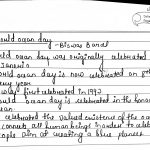 ould ocean day
- Biswas Bansal
ould ocean day was originally celebrated
ould ocean day is now celebrated on
every year
was first celebrated in 1992
ould ocean day is celebrated in the honour
ocean.
celebrated the valued existence of the
connects all human beings in order to
people aim at creating a blue planet